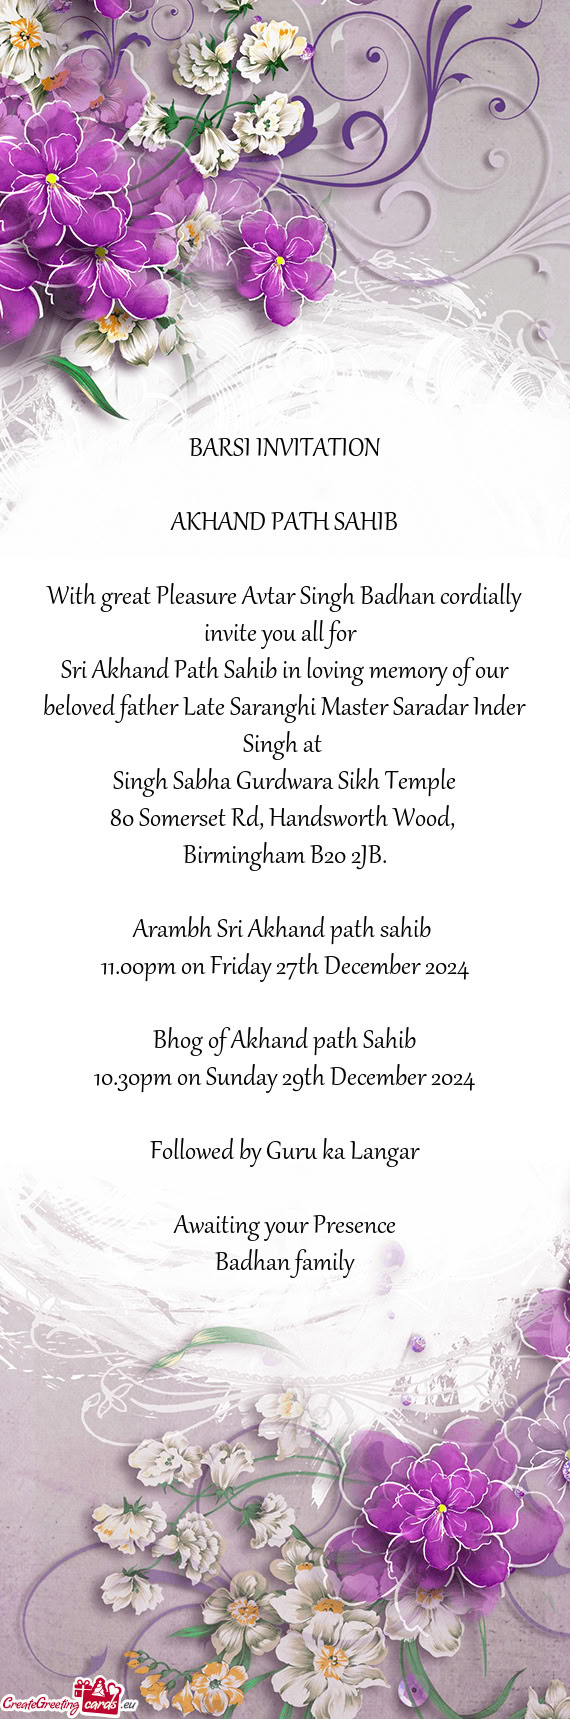 BARSI INVITATION
AKHAND PATH SAHIB
With great Pleasure Avtar Singh Badhan cordially
invite you all for
Sri Akhand Path Sahib in loving memory of our
beloved father Late Saranghi Master Saradar Inder
Singh at
Singh Sabha Gurdwara Sikh Temple
80 Somerset Rd, Handsworth Wood,
Birmingham B20 2JB.
Arambh Sri Akhand path sahib
11.00pm on Friday 27th December 2024
Bhog of Akhand path Sahib
10.30pm on Sunday 29th December 2024
Followed by Guru ka Langar
Awaiting your Presence
Badhan family
CreateGreeting cards .eu